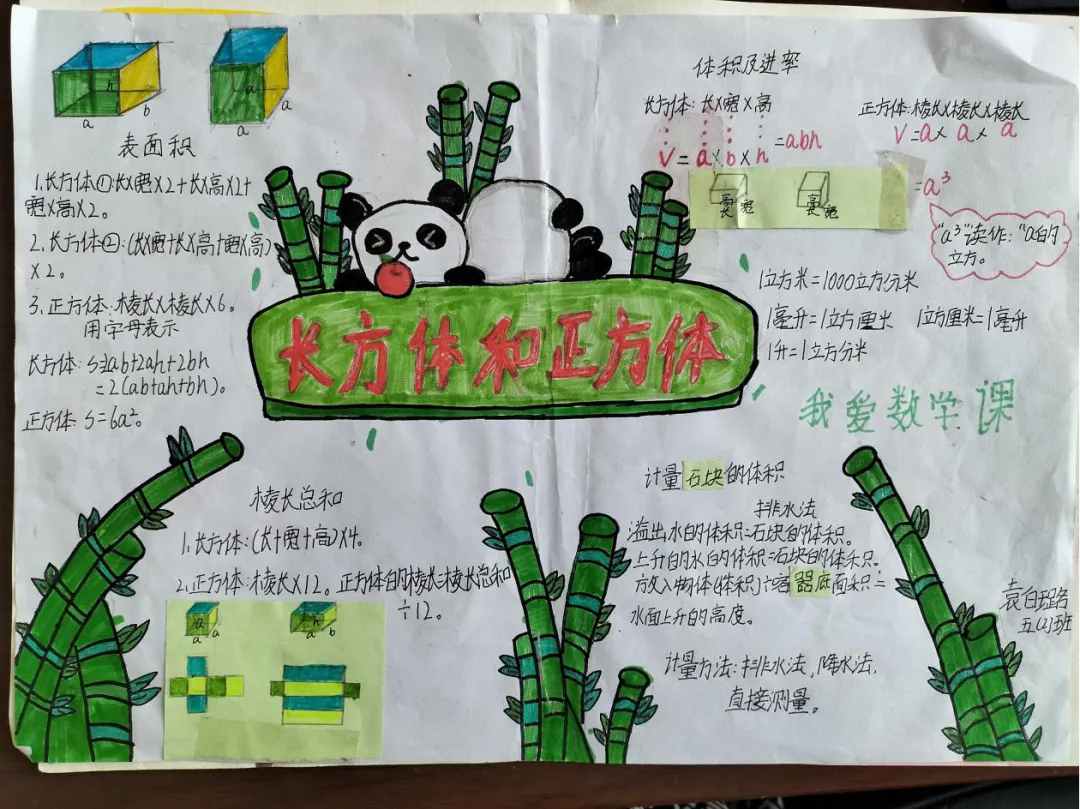 a
h
b
a
a
a
表面积
1.长方体①:长×宽×2+长×高×2+
宽×高×2。
2.长方体②:(长×宽+长×高+宽×高)
×2。
3.正方体:棱长×棱长×6。
用字母表示
长方体:S=2ab+2ah+2bh
=2(ab+ah+bh)。
正方体:S=6a²。
长方体和正方体
体积及进率
长方体:长×宽×高
V=a×b×h=abh
正方体:棱长×棱长×棱长
V=a×a×a
=a³
高
长
宽
高
长
宽
"a³"读作:"a的
立方。
1立方米=1000立方分米
1毫升=1立方厘米 1立方厘米=1毫升
1升=1立方分米
我爱数学课
棱长总和
1.长方体:(长+宽+高)×4。
2.正方体:棱长×12。正方体的棱长=棱长总和
÷12。
a
a
a
h
a
b
计量石块的体积
排水法
溢出水的体积=石块的体积。
上升的水的体积=石块的体积。
放入物体的体积÷容器底面积=
水面上升的高度。
计量方法:排水法,降水法,
直接测量。
五(2)班